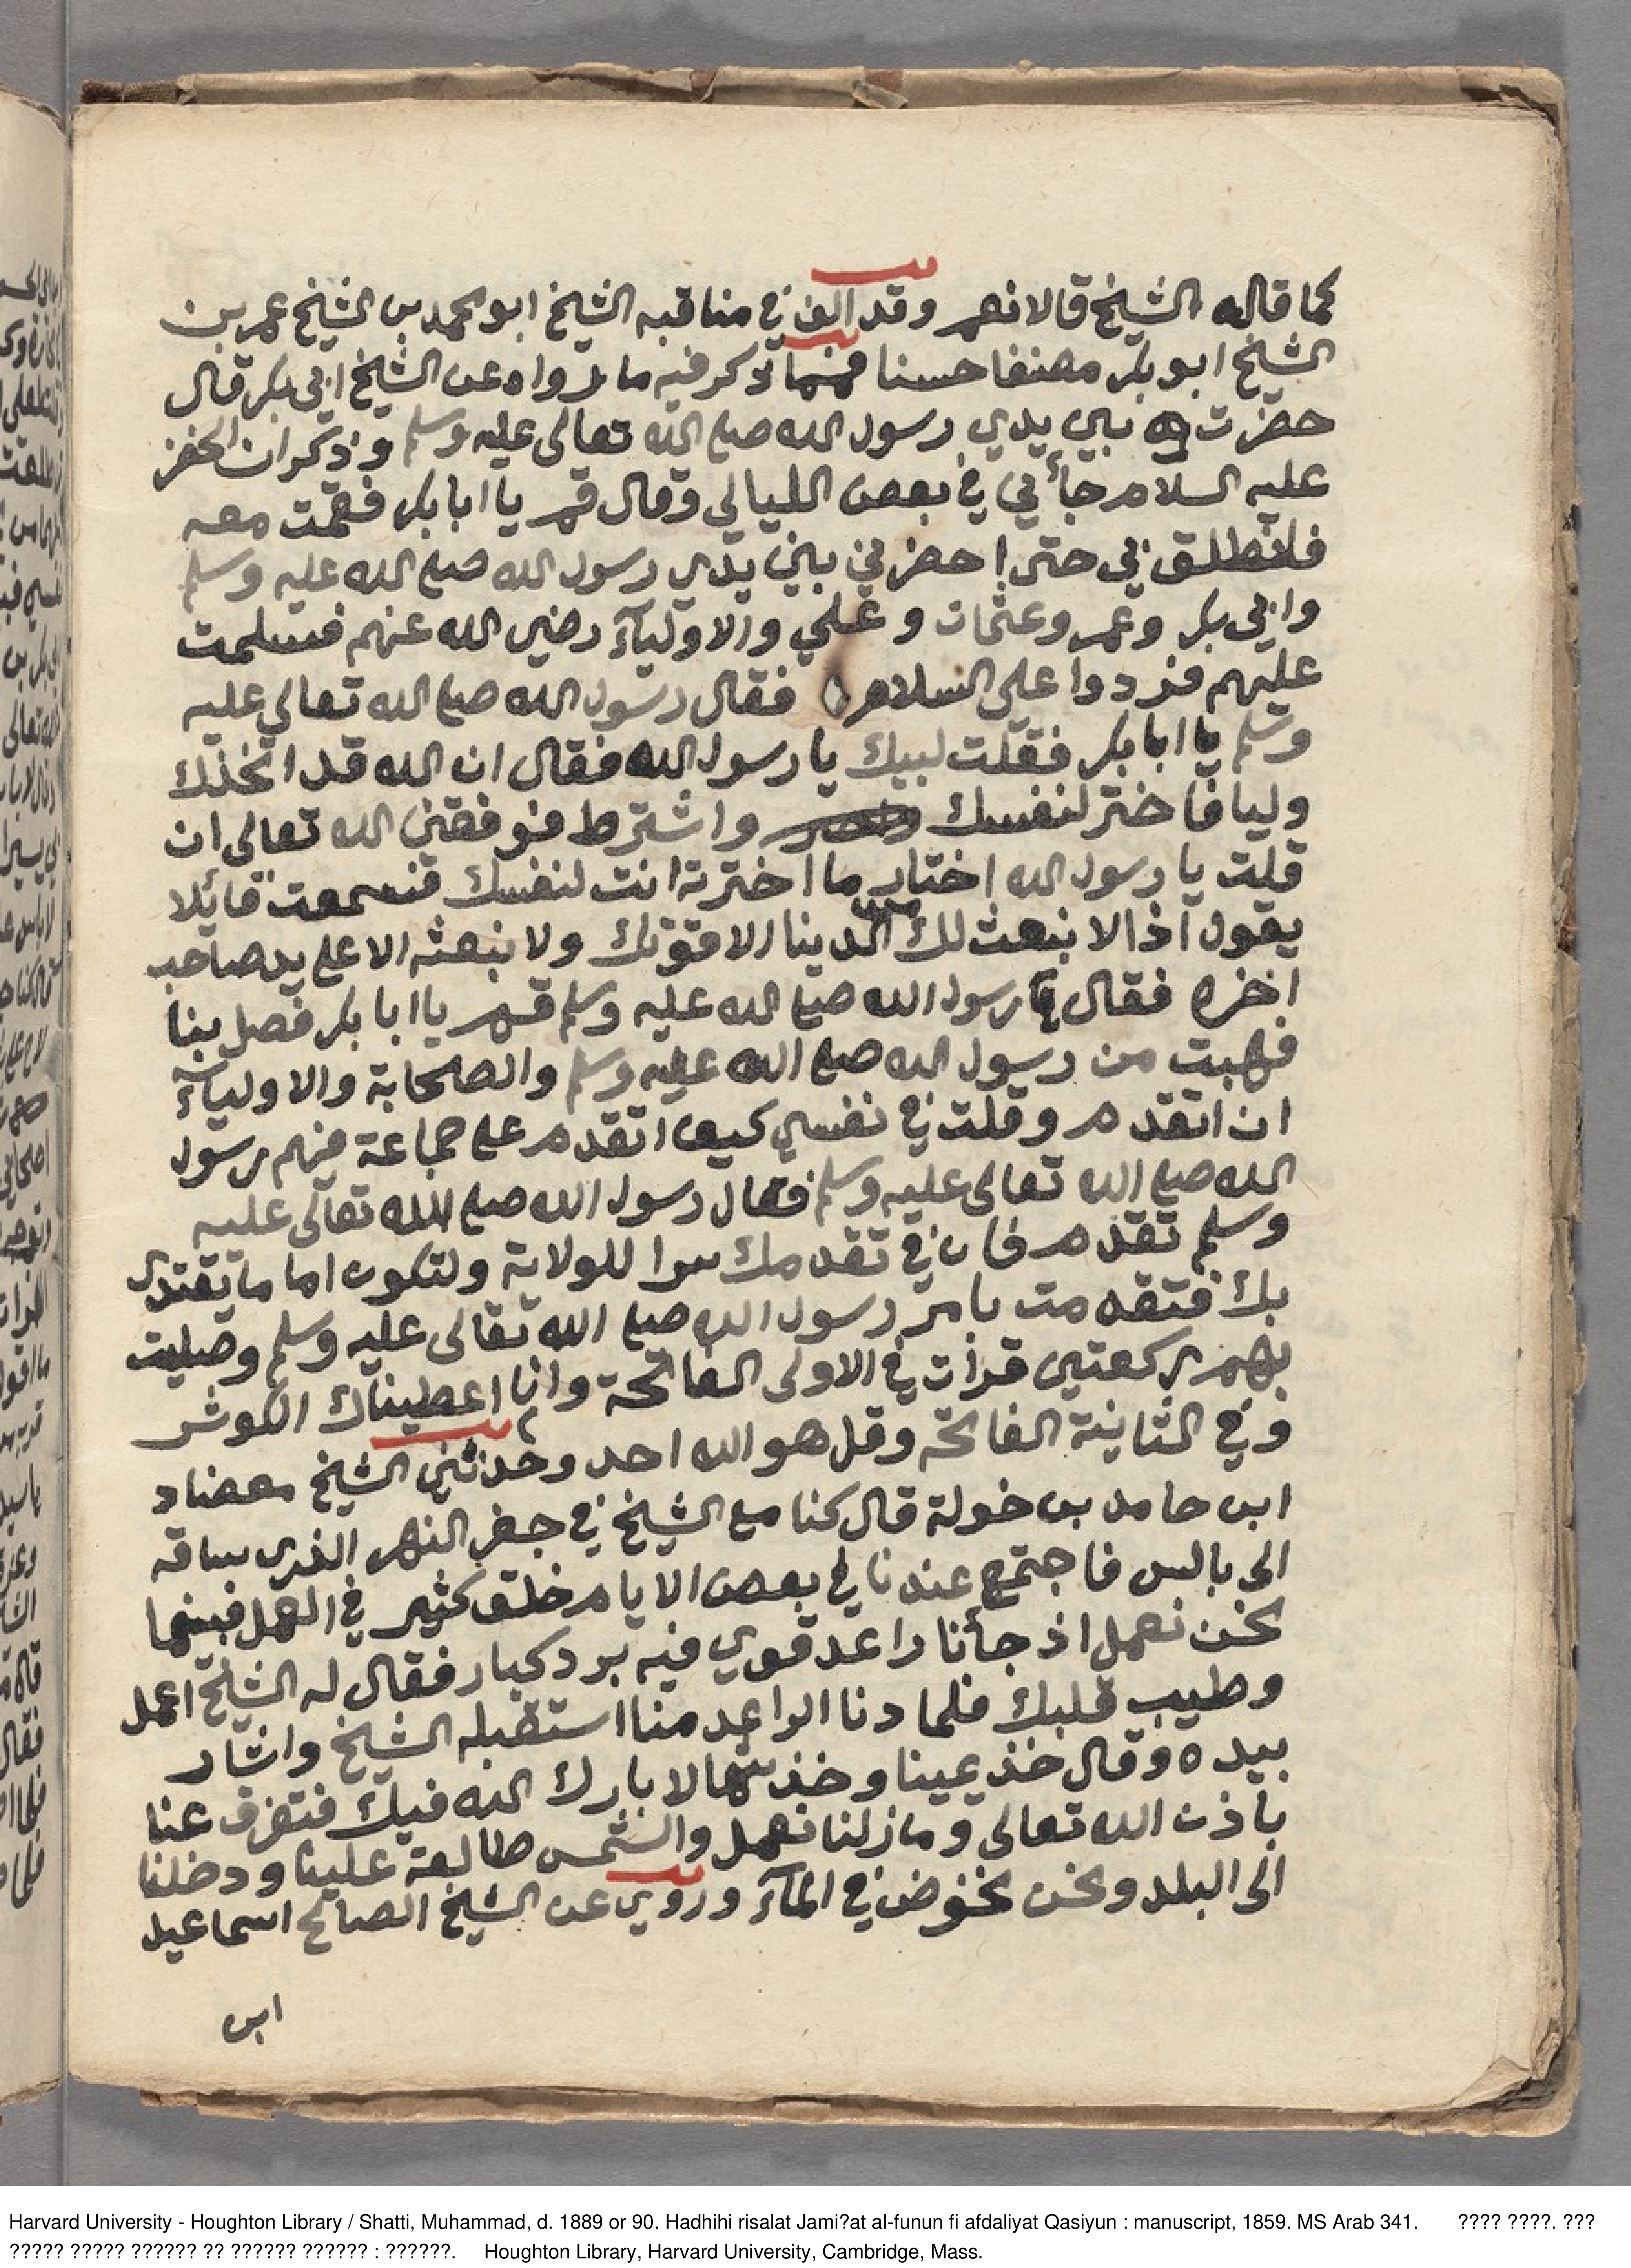 كما قاله الشيخ قالا نعم وقد الف في مناقبه الشيخ ابو محمد بن الشيخ عمر بن
الشيخ ابو بكر مصنفا حسنا فمما ذكر فيه ما رواه عن الشيخ ابي بكر قال
حضرت بين يدي رسول الله صلى الله تعالى عليه وسلم وذكر ان الخضر
عليه السلام جأني في بعض الليالي وقال قم يا ابا بكر فقمت معه
فانطلق بي حتى احضرني بين يدي رسول الله صلى الله عليه وسلم
وابي بكر وعمر وعثمان وعلي والاوليآء رضي الله عنهم فسلمت
عليهم فردوا علي السلام فقال رسول الله صلى الله تعالى عليه
وسلم يا ابا بكر فقلت لبيك يا رسول الله فقال ان الله قد اتخذك
وليا فاختر لنفسك واشترط فوفقني الله تعالى ان
قلت يا رسول الله اختار ما اخترته انت لنفسك فسمعت قايلا
يقول اذا لا نبعث لك من الدينا الا قوتك ولا نبعثه الا على يد صاحب
اخره فقال رسول الله صلى الله عليه وسلم قم يا ابا بكر فصل بنا
فهبت من رسول الله صلى الله عليه وسلم والصحابة والاوليآء
ان اتقدم وقلت في نفسي كيف اتقدم على جماعة فيهم رسول
الله صلى الله تعالى عليه وسلم فقال رسول الله صلى الله تعالى عليه
وسلم تقدم فان في تقدمك سرا للولاية ولتكون اماما تقتدى
بك فتقدمت بامر رسول الله صلى الله تعالى عليه وسلم وصليت
بهم ركعتين قرأت في الاولى الفاتحة وانا اعطيناك الكوثر
وفي الثانية الفاتحة وقل هو الله احد وحدثني الشيخ معضاد
ابن حامد بن خولة قال كنا مع الشيخ في حفر النهر الذي ساقه
الى بالس فاجتمع عندنا في بعض الايام خلق كثير في العمل فبينما
نحن نعمل اذ جأنا راعد قوي فيه برد كبار فقال له الشيخ اعمل
وطيب قلبك فلما دنا الراعد منا استقبله الشيخ واشار
بيده وقال خذ يمينا وخذ شمالا بارك الله فيك فتفرق عنا
باذن الله تعالى وما زلنا نعمل والشمس طالعة علينا ودخلنا
الى البلد ونحن نخوض في المآء وروي عن الشيخ الصالح اسماعيل
ابن
Harvard University - Houghton Library / Shatti, Muhammad, d. 1889 or 90. Hadhihi risalat Jami?at al-funun fi afdaliyat Qasiyun : manuscript, 1859. MS Arab 341. ???? ????. ???
????? ????? ?????? ?? ?????? ?????? : ??????. Houghton Library, Harvard University, Cambridge, Mass.